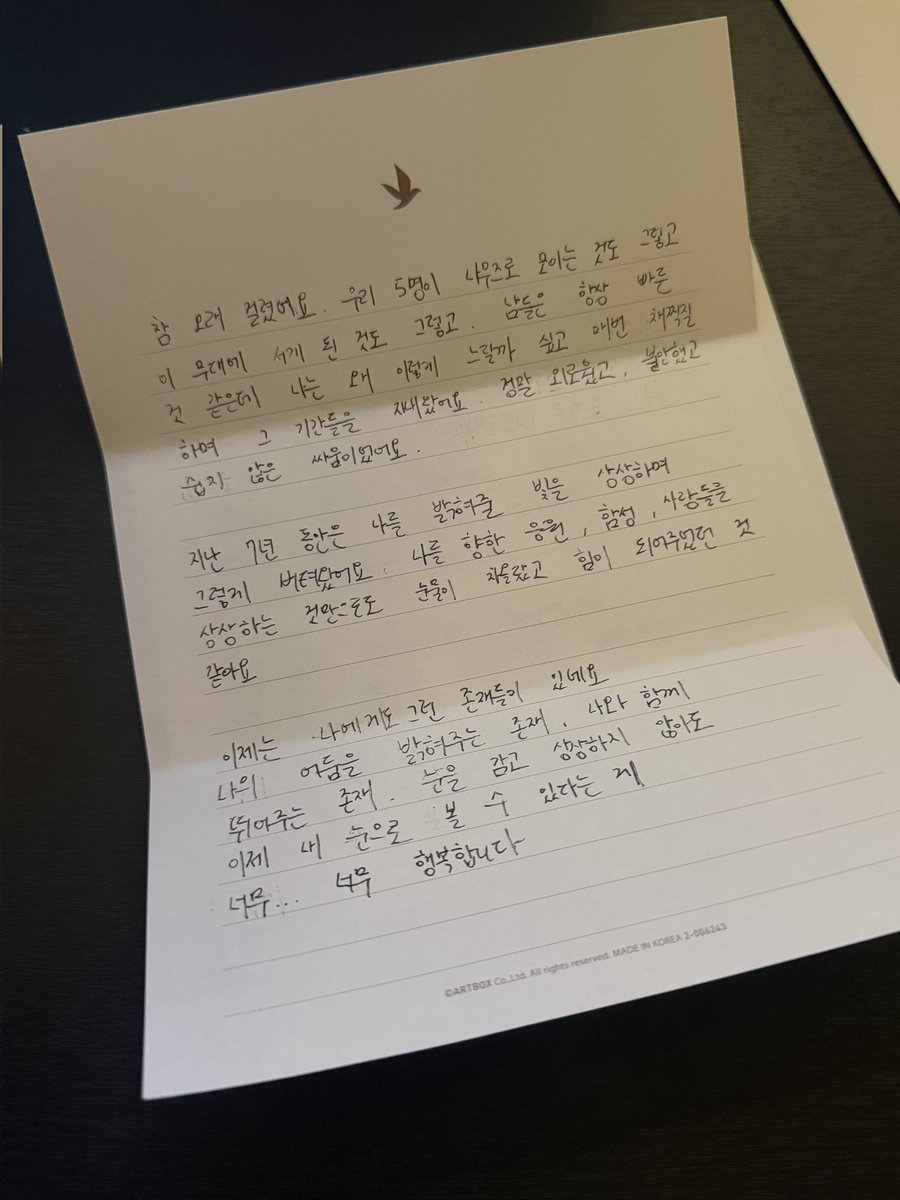 참 오래 걸렸어요. 우리 5명이 나우즈로 모이는 것도 그렇고
이 무대에 서게 된 것도 그렇고. 남들은 항상 바른
것 같은데 나는 왜 이렇게 느릴까 싶고 매번 채찍질
하며 그 기간들을 지내왔어요. 정말 외로웠고, 불안했고
쉽지 않은 싸움이었어요.
지난 7년 동안은 나를 밝혀줄 빛을 상상하며
그렇게 버텨왔어요. 나를 향한 응원, 함성, 사랑들을
상상하는 것만으로도 눈물이 차올랐고 힘이 되어주었던 것
같아요
이제는 나에게도 그런 존재들이 있네요
나의 어둠을 밝혀주는 존재. 나와 함께
뛰어주는 존재. 눈을 감고 상상하지 않아도
이제 내 눈으로 볼 수 있다는 게
너무... 너무 행복합니다
©ARTBOX Co.,Ltd. All rights reserved. MADE IN KOREA 2-006243